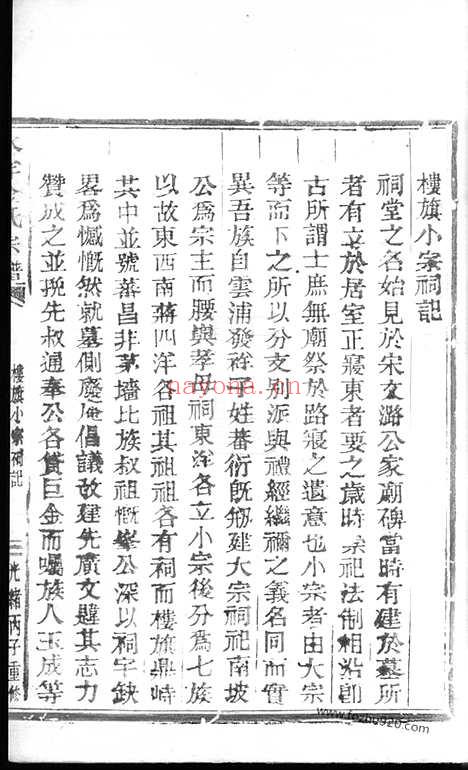 樓旗小宗祠記
祠堂之名始見於宋文潞公家廟碑當時有建於墓所
者有立於居室正寢東者要之歲時祭祀法制相沿卽
古所謂士庶無廟祭於路寢之遺意也小宗者由大宗
等而下之所以分支別派與禮經繼禰之義名同而實
異吾族自雲浦發祥子姓蕃衍旣剙建大宗祠祀南坡
公爲宗主而腰與孝毋祠東洋各立小宗後分爲七族
以故東西南蔣四洋各祖其祖祖各有祠而樓旗鼎峙
其中並號蕃昌非茅墻比族叔祖慨峯公深以祠宇缺
畧爲憾慨然就墓側廢倡議故建先廣文韙其志力
贊成之並挽先叔通奉公各貲巨金而囑族人玉成等
氏宗譜
樓旗小宗祠記
光緒丙子重修
nayona.cn
www.fozhu920.com